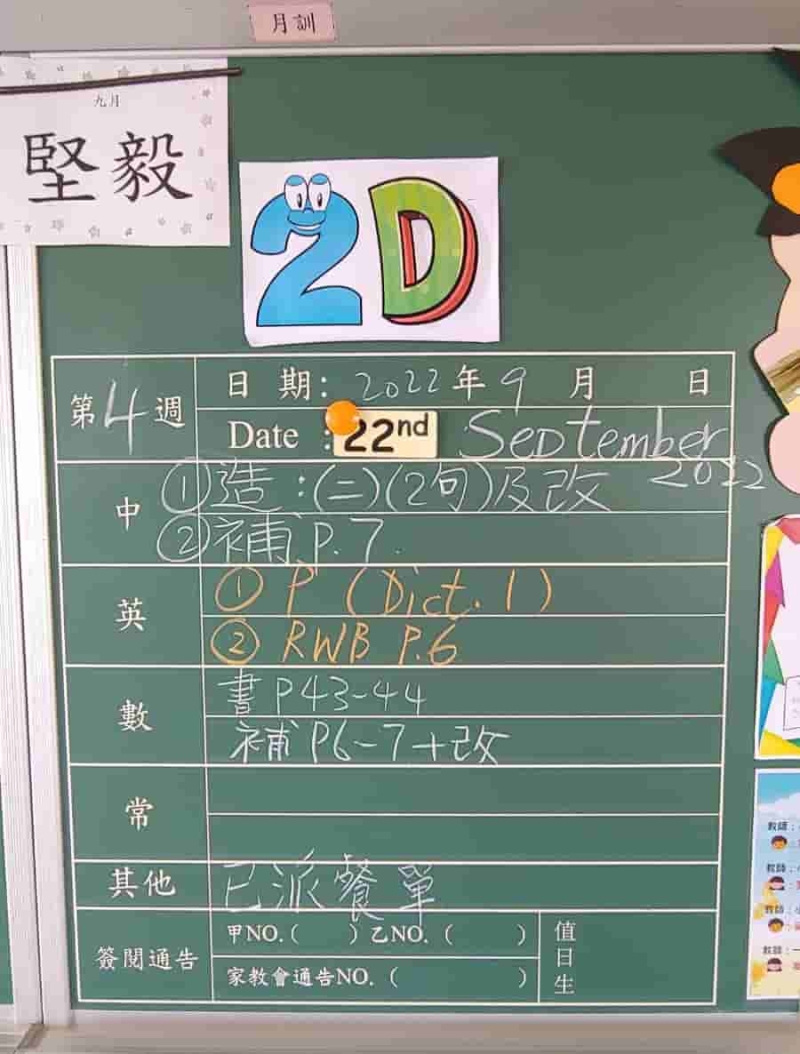 月訓
九月
堅毅
2D
第4週
日期: 2022年9月 日
Date : 22nd September 2022
中
①造:(二)(2句)及改
②補 P.7.
英
① P (Dict. 1)
② RWB P.6
數
書 P43-44
補 P6-7+改
常
其他
已派餐單
簽閱通告
甲NO.( ) 乙NO. ( )
家教會通告NO. ( )
值日生
教師:
教師:
教師:
教師: